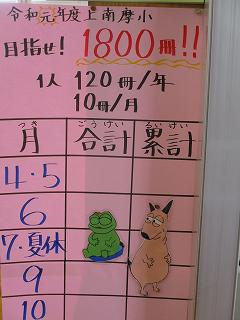 令和元年度上南摩小
目指せ! 1800冊!!
1人 120冊/年
10冊/月
つき ごうけい るいけい
月 合計 累計
4・5
6
7・夏休
9
10